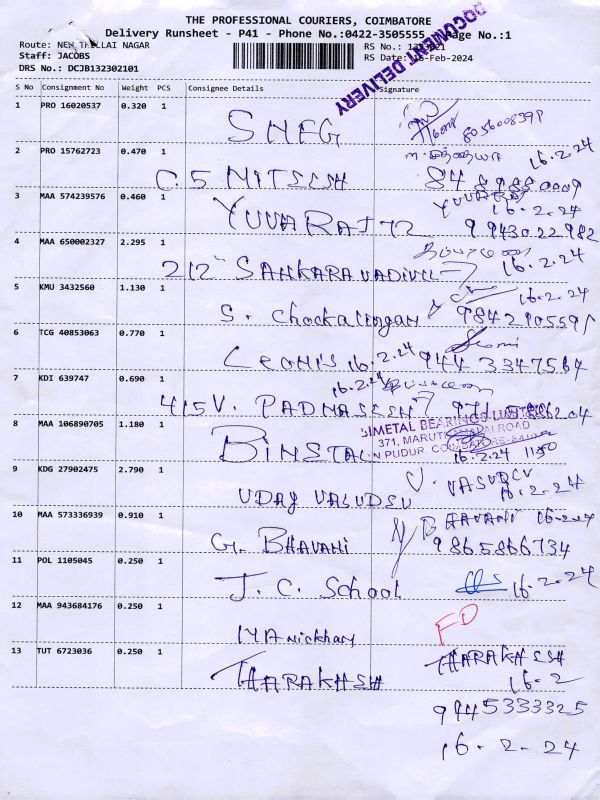 THE PROFESSIONAL COURIERS, COIMBATORE
Delivery Runsheet - P41 - Phone No.:0422-3505555 Page No.:1
Route: NEW THILLAI NAGAR
Staff: JACOBS
DRS No.: DCJB132302101
RS No.:
RS Date: 16-Feb-2024
DOCUMENT DELIVERY
S No Consignment No Weight PCS Consignee Details Signature
1 PRO 16020537 0.320 1 SNEG
8056008391
16.2.24
2 PRO 15762723 0.470 1 C.S MITESH
3 MAA 574239576 0.460 1 YUVARAJ
YUVARAJ
16.2.24
9943022982
4 MAA 650002327 2.295 1 212 SANKARAVADIVEL
16.2.24
5 KMU 3432560 1.130 1 S. Chockalingam
16.2.24
6 TCG 40853063 0.770 1 Leonis 16.2.24 944 3347564
7 KDI 639747 0.690 1
16.2.24
415V. PADMASESH
8 MAA 106890705 1.180 1 BINSTAL
BIMETAL BEARINGS LIMITED
371, MARUTHAMALAI ROAD
N PUDUR, COIMBATORE
16.2.24 11:50
9 KDG 27902475 2.790 1 UDAY VASUDEV
V. VASUDEV
16.2.24
10 MAA 573336939 0.910 1 G. BHAVANI
BHAVANI 16.2.24
9865866734
11 POL 1105045 0.250 1 J.C. School
16.2.24
12 MAA 943684176 0.250 1 MANickham
FD
13 TUT 6723036 0.250 1 THARAKHESH
THARAKHESH
16.2
9945333325
16.2.24